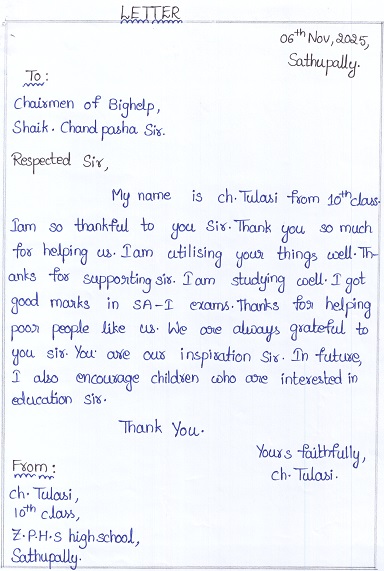 LETTER
06th Nov, 2025,
Sathupally.
To:
Chairmen of Bighelp,
Shaik. Chand pasha Sir.
Respected Sir,
My name is ch. Tulasi from 10th class.
Iam so thankful to you Sir. Thank you so much
for helping us. I am utilising your things well. Th-
anks for supporting sir. I am studying well. I got
good marks in SA-I exams. Thanks for helping
poor people like us. We are always grateful to
you sir. You are our inspiration Sir. In future,
I also encourage children who are interested in
education sir.
Thank You.
Yours faithfully,
ch. Tulasi.
From:
ch. Tulasi,
10th class,
Z.P.H.S high school,
Sathupally.